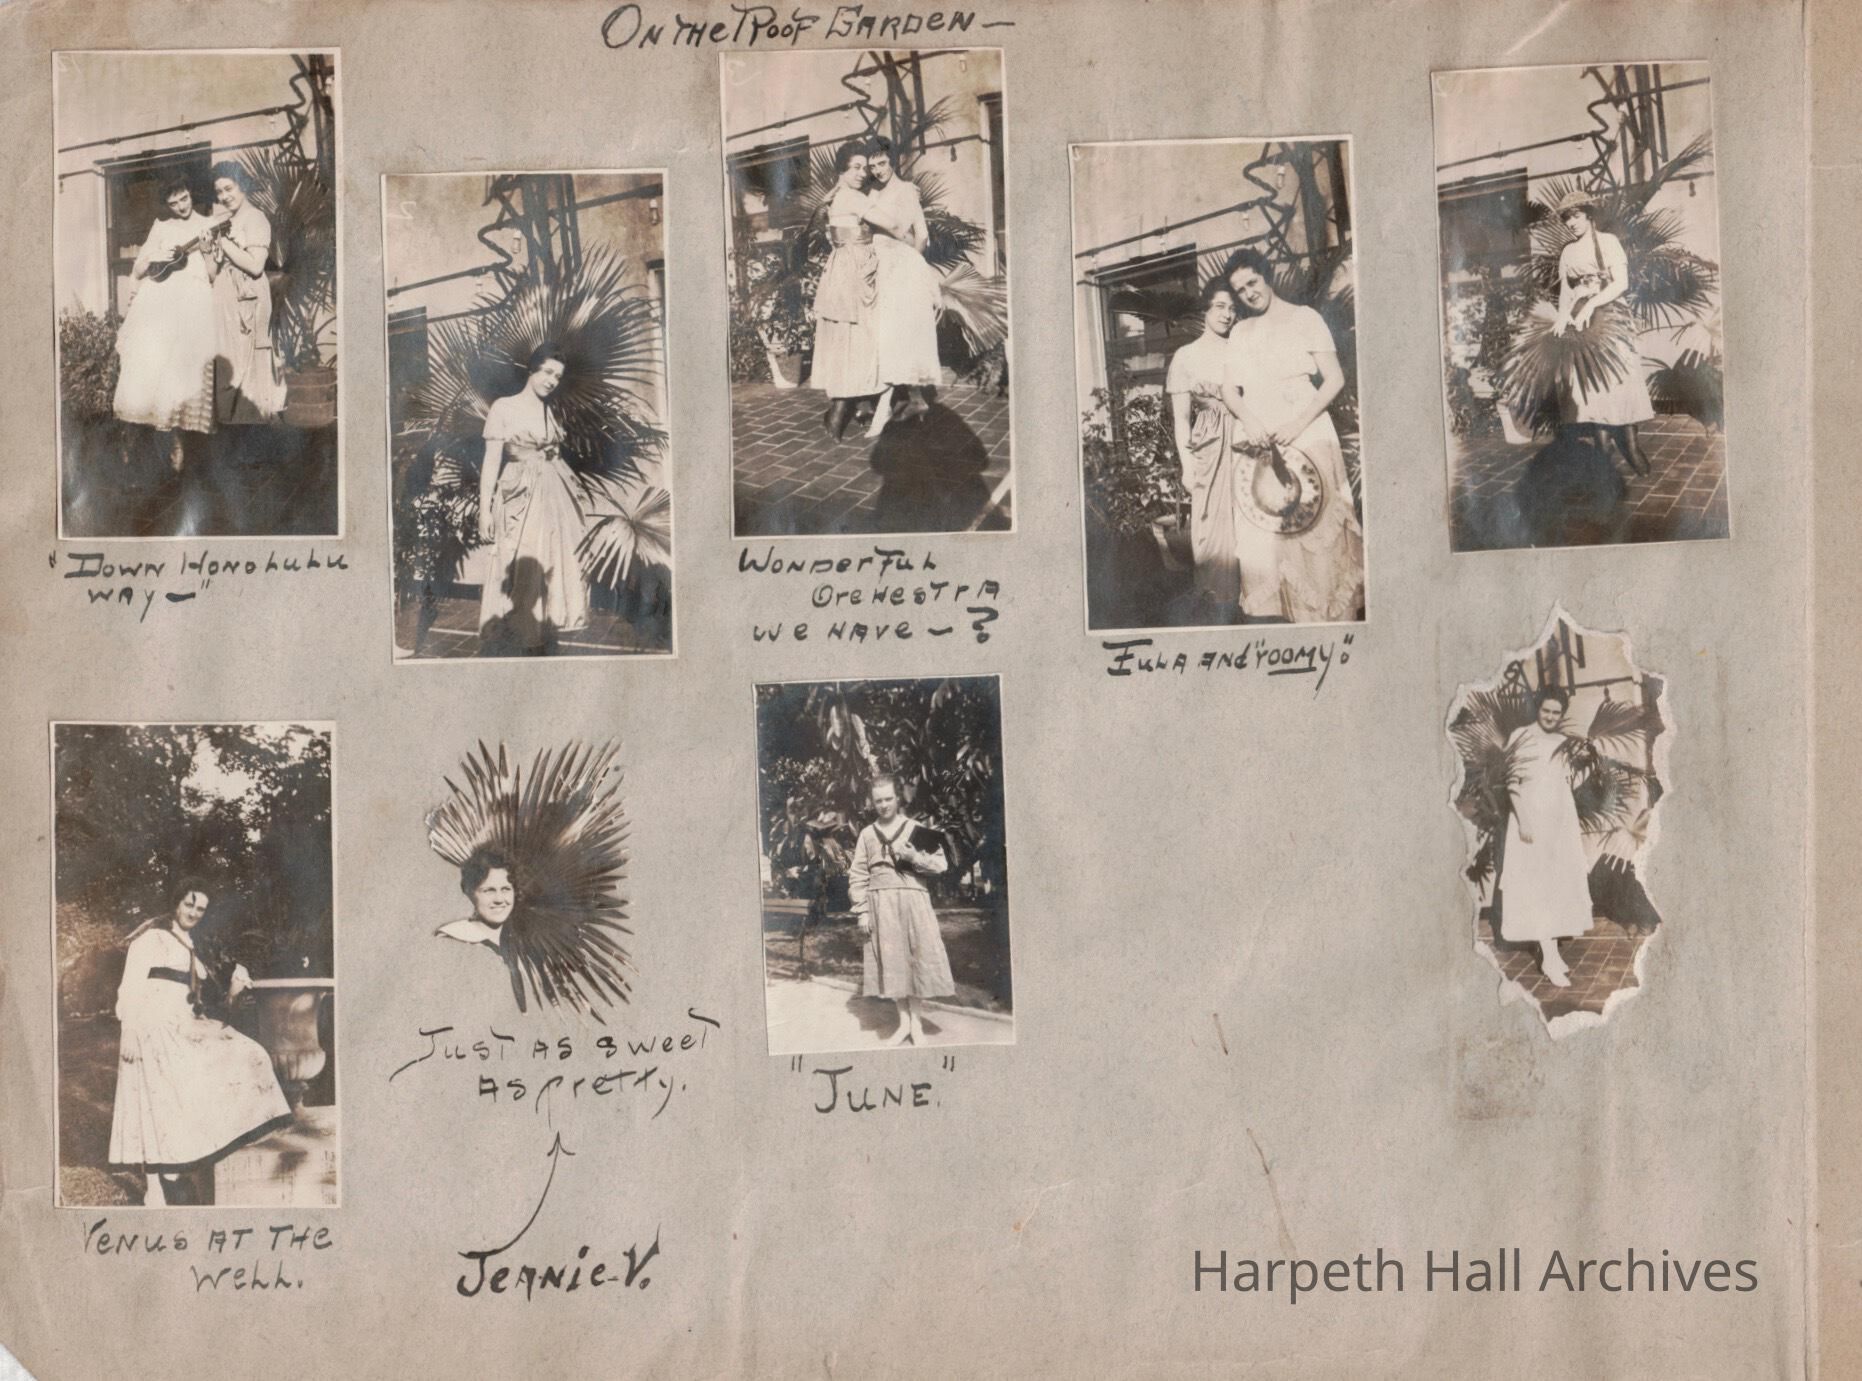 On the Roof Garden—
"Down Honolulu
way—"
Wonderful
Orchestra
we have—?
Eula and "roomy".
Venus at the
Well.
Just as sweet
as pretty.
Jeanie-V.
"June."
Harpeth Hall Archives